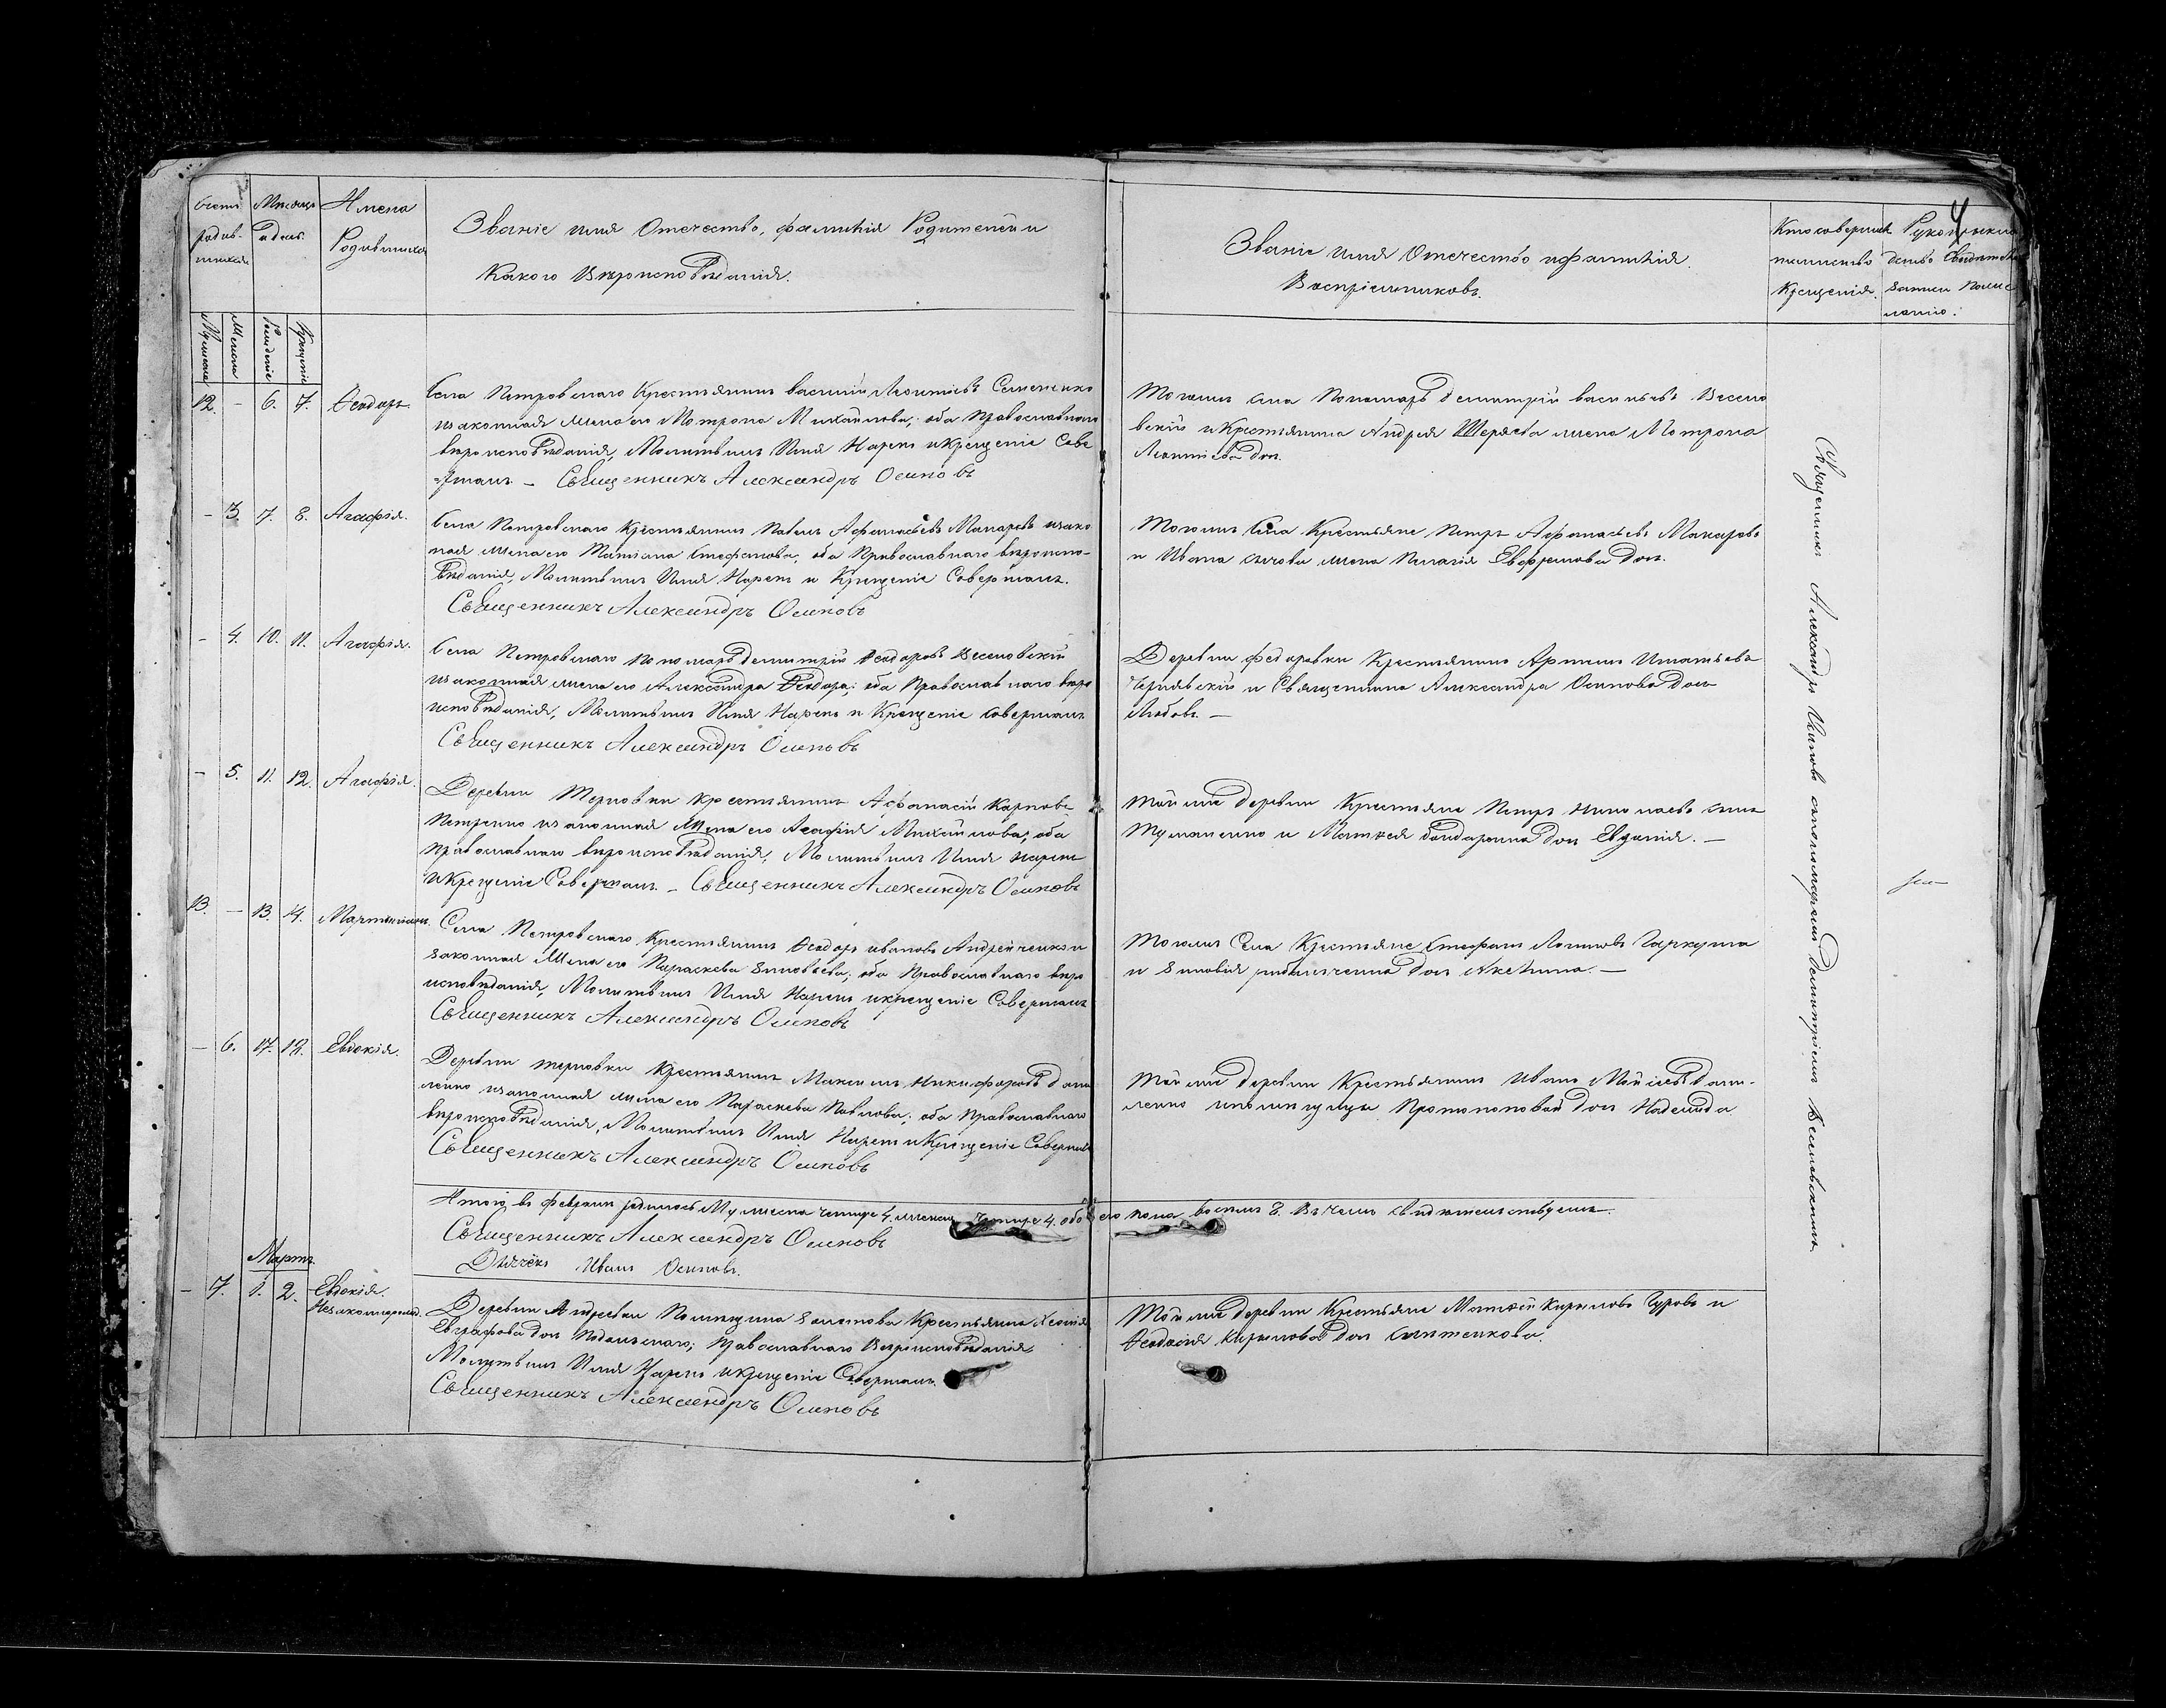 4
Счетъ родив-шихся
Мѣсяцъ и день.
Имена Родившихся
Званіе имя Отечество, фамилія Родителей и
Какого Вѣроисповѣданія.
Званіе имя Отечество и фамилія
Воспріемниковъ.
Кто совершалъ таинство Крещенія.
Рукоприкла-
дство свидѣтелей
записи по же-
ланію.
Мужеска
Женска
Рожденіе
Крещеніе
12. – 6. 7. Ѳеодоръ.
Села Петровскаго Крестьянинъ василій Леонтіевъ Семененко
и законная жена его Матрона Михайлова; оба православнаго
вѣроисповѣданія, Молитвилъ Имя Нарекъ и Крещеніе Сове
ршалъ – Священникъ Александръ Осиповъ
Тогожъ села Пономарь димитрій васильевъ Весело
вскій и Крестьянина Андрея Шеряева жена Матрона
Леонтіева дочь.
– 3. 7. 8. Агафія.
Села Петровскаго Крестьянинъ Павелъ Афанасьевъ Макаровъ и зако
ная жена его Татіана Стефанова; оба Православнаго вѣроиспо-
вѣданія, Молитвилъ Имя Нарекъ и Крещеніе Совершалъ.
Священникъ Александръ Осиповъ
Тогожъ Села Крестьяне Петръ Афанасьевъ Макаровъ
и Ивана Сычова жена Пелагія Евфремова дочь.
– 4. 10. 11. Агафія.
Села Петровскаго пономарь димитрій Ѳеодоровъ Веселовскій
и законная жена его Александра Ѳеодора; оба Православнаго вѣро
исповѣданія, Молитвилъ Имя Нарекъ и Крещеніе совершалъ
Священникъ Александръ Осиповъ
Деревни Федоровки Крестьянинъ Артемъ Игнатьевъ
Чернявскій и Священника Александра Осипова дочь
Любовь. –
– 5. 11. 12. Агафія.
Деревни Терновки крестьянинъ Афанасій Карповъ
Петренко и законная Жена его Агафія Михайлова; оба
православнаго вѣроисповѣданія, Молитвилъ Имя нарекъ
и Крещеніе Совершалъ. – Священникъ Александръ Осиповъ
Той же деревни Крестьяне Петръ Николаевъ сынъ
Тумаченко и Матѳея бондаренка дочь Евгенія. –
13. – 13. 14. Мартиніанъ.
Села Петровскаго Крестьянинъ Ѳеодоръ ивановъ Андрейченко и
законная Жена его Параскева Зиновьева; оба Православнаго вѣро
исповѣданія, Молитвилъ Имя Нарекъ и крещеніе Совершалъ
Священникъ Александръ Осиповъ
Тогожъ Села Крестьяне Стефанъ Логиновъ Гаркуша
и Зиновія дочь Аксинія. –
– 6. 17. 18. Евдокія.
Деревни терновки Крестьянинъ Максимъ Никифоровъ дани
ленко и законная жена его Параскева Павлова; оба Православнаго
вѣроисповѣданія, Молитвилъ Имя Нарекъ и Крещеніе Совершалъ
Священникъ Александръ Осиповъ
Той же деревни Крестьянинъ Иванъ Мойсіевъ дани-
ленко и помещицы Протопоповой дочь Надежда
Итого въ февралѣ родилось Мужеска четыре 4. женска четыре 4. обоего пола восемь 8. Въ чемъ свидѣтельствуемъ.
Священникъ Александръ Осиповъ
Дьячекъ Иванъ Осиповъ.
Мартъ.
– 7. 1. 2. Евдокія. Незаконнорожд.
Деревни Андреевки Помещика Золотова Крестьянка Ксенія
Евграфова дочь православнаго Вѣроисповѣданія
Молитвилъ Имя Нарекъ и крещеніе Совершалъ.
Священникъ Александръ Осиповъ
Той же деревни Крестьяне Матѳей Кириловъ Гуровъ и
Ѳеодосія Кирилова дочь
Священникъ Александръ Осиповъ съ пономаремъ Димитріемъ Веселовскимъ.